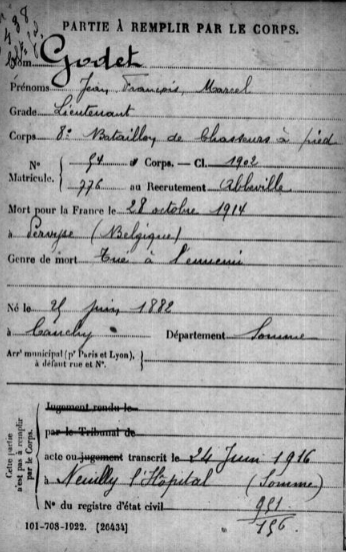 PARTIE À REMPLIR PAR LE CORPS.
Nom Godet
Prénoms Jean François, Marcel
Grade Lieutenant
Corps 8e Bataillon de Chasseurs à pied
N° 54 au Corps. — Cl. 1902
Matricule. 776 au Recrutement Abbeville
Mort pour la France le 28 octobre 1914
à Pervyse (Belgique)
Genre de mort Tué à l'ennemi
Né le 25 juin 1882
à Cauchy Département Somme
Arr' municipal (p' Paris et Lyon),
à défaut rue et N°.
Cette partie
n'est pas à remplir
par le Corps.
Jugement rendu le
par le Tribunal de
acte ou jugement transcrit le 24 Juin 1916
à Neuilly l'Hôpital (Somme)
N° du registre d'état civil
156
101-708-1922. [26434]